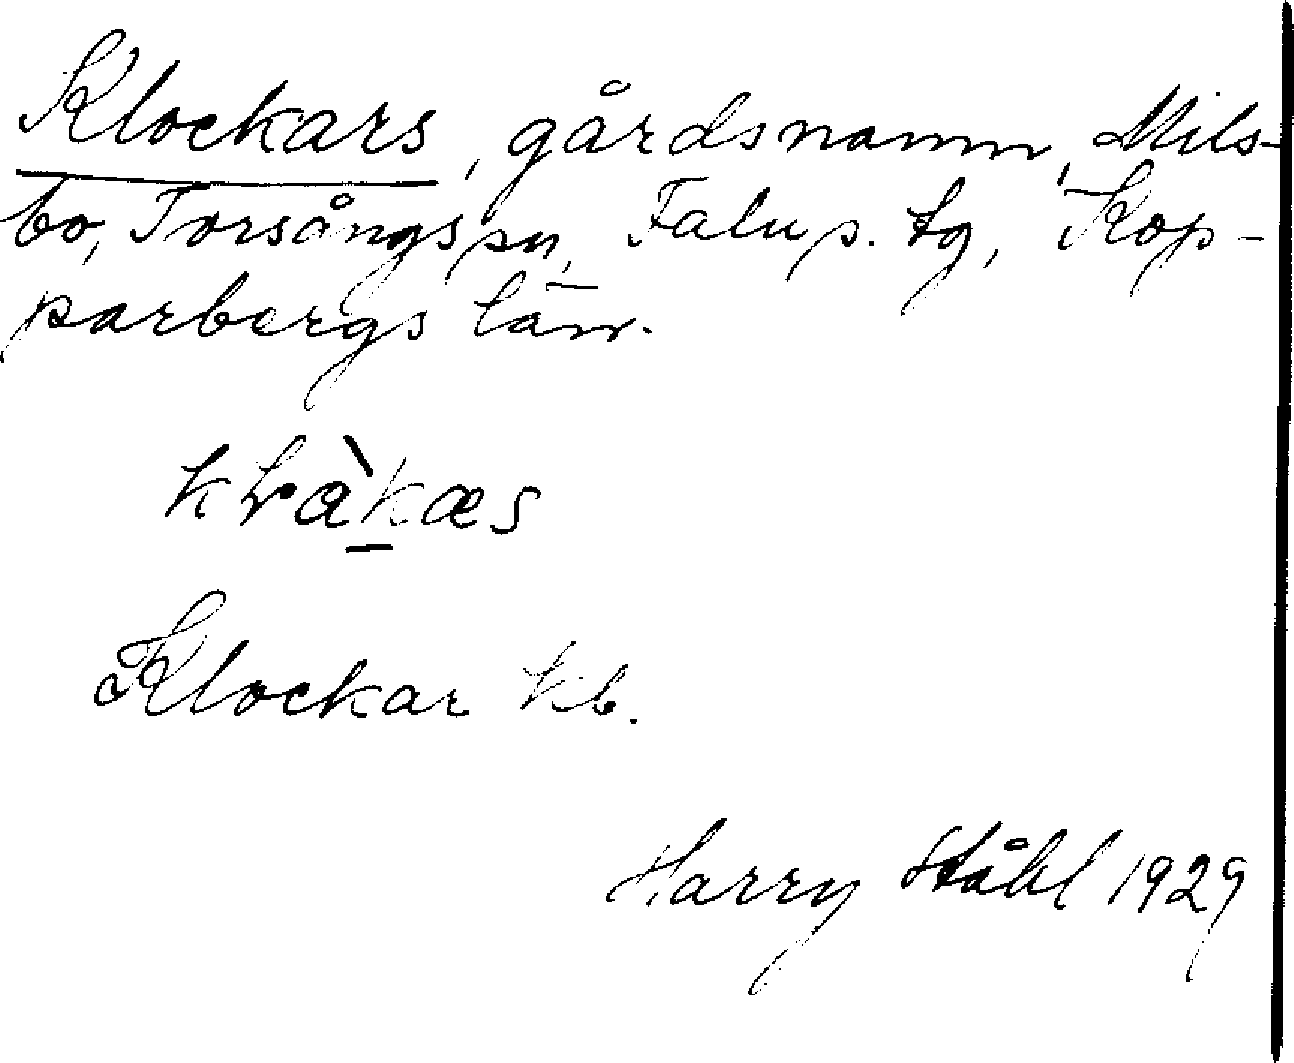 Klockars, gårdsnamn, Mils-
bo, Torsångs sn, Falu s. tg, Kop-
parbergs län.
Klockar kb.
Harry Ståhl 1929